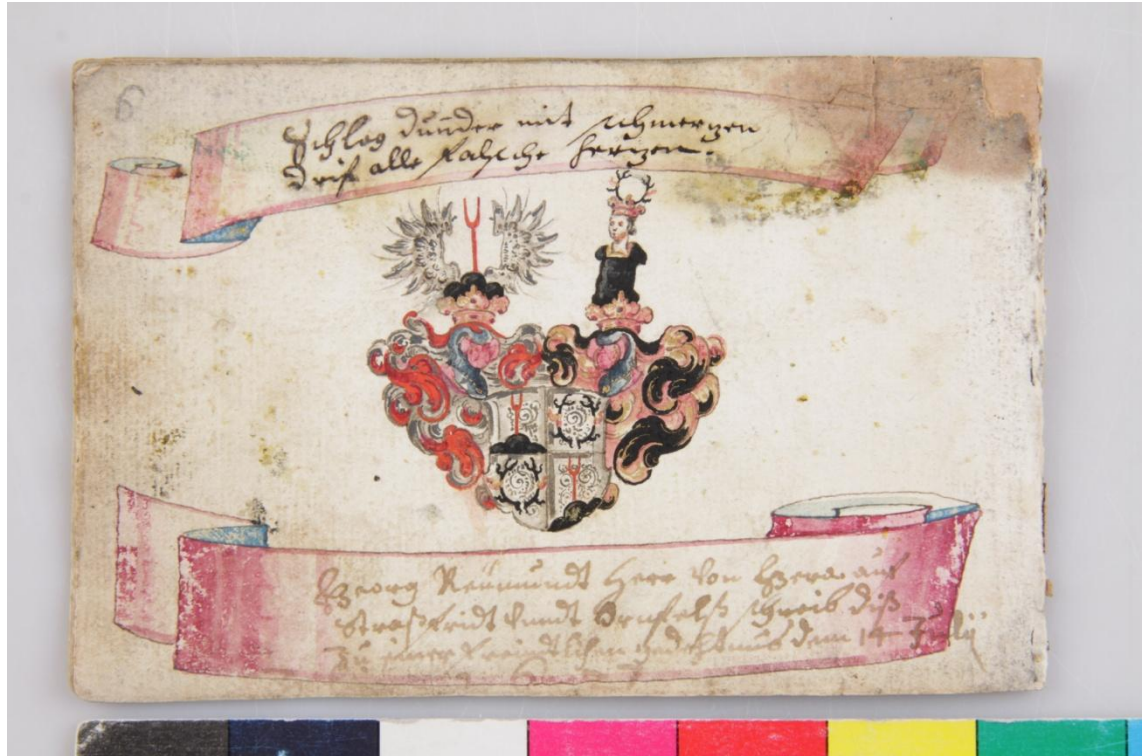 6
Schlag dunder mit schmerzen
Drif alle falsche hertzen.
Georg Reümundt Herr von Gera auf
Straßfridt vundt Arnfelß schreib diß
Zu einer freindtlichen gedechtnus dem 14 Julij